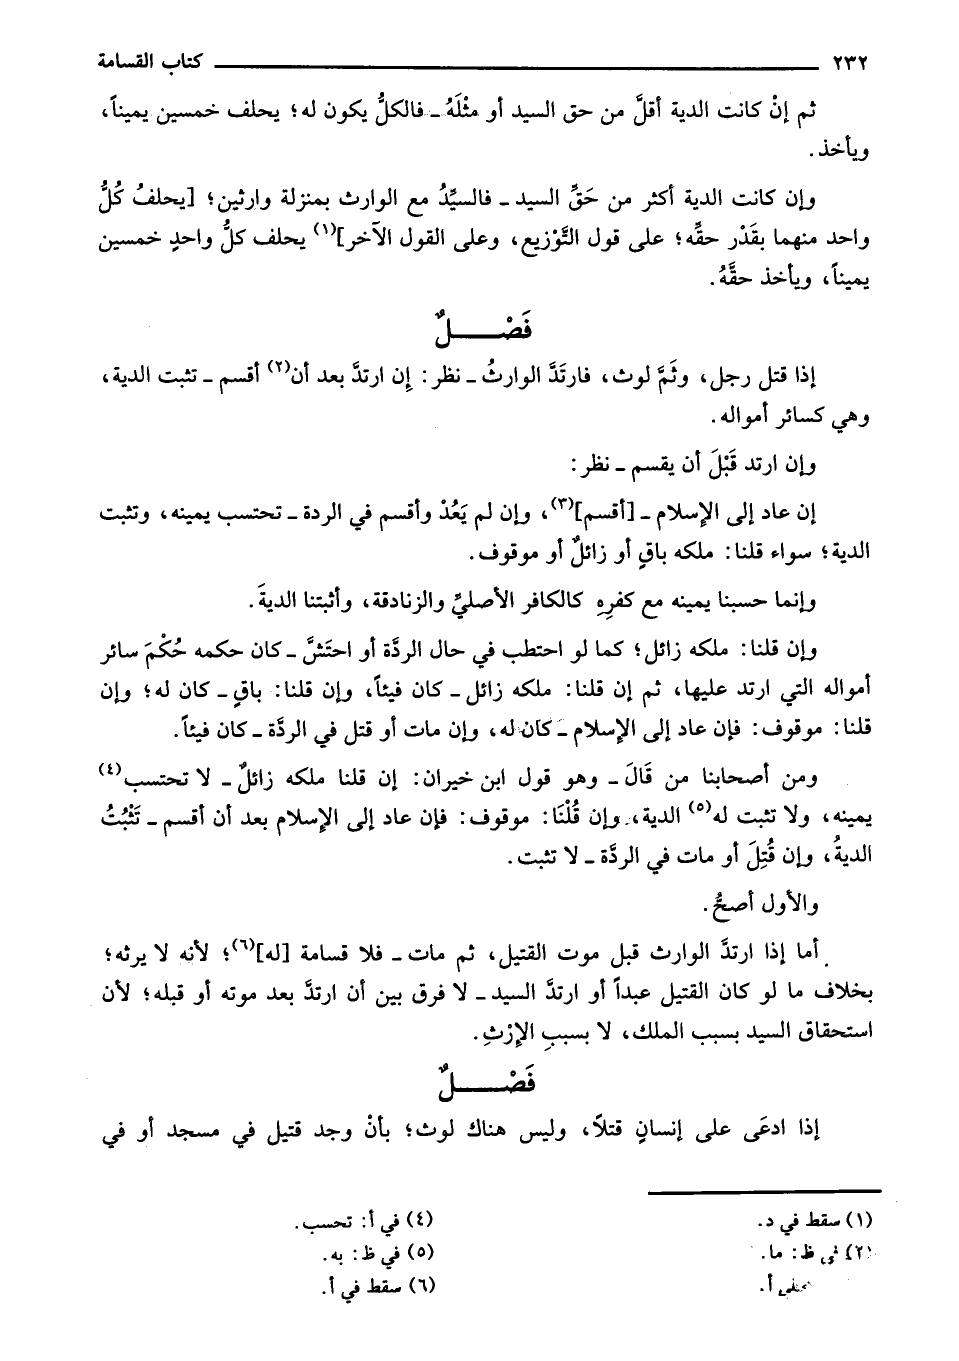 ٢٣٢ كتاب القسامة
ثم إنْ كانت الدية أقلَّ من حق السيد أو مثْلَهُ ـ فالكلُّ يكون له؛ يحلف خمسين يميناً،
ويأخذ.
وإن كانت الدية أكثر من حَقِّ السيد ـ فالسيِّدُ مع الوارث بمنزلة وارثين؛ [يحلفُ كُلُّ
واحد منهما بقَدْر حقِّه؛ على قول التَّوْزيع، وعلى القول الآخر](١) يحلف كلُّ واحدٍ خمسين
يميناً، ويأخذ حقَّهُ.
فَصْـــــلٌ
إذا قتل رجل، وثَمَّ لوث، فارتَدَّ الوارثُ ـ نظر: إن ارتدَّ بعد أن(٢) أقسم ـ تثبت الدية،
وهي كسائر أمواله.
وإن ارتد قَبْلَ أن يقسم ـ نظر:
إن عاد إلى الإسلام ـ [أقسم](٣)، وإن لم يَعُدْ وأقسم في الردة ـ تحتسب يمينه، وتثبت
الدية؛ سواء قلنا: ملكه باقٍ أو زائلٌ أو موقوف.
وإنما حسبنا يمينه مع كفرِهِ كالكافر الأصليِّ والزنادقة، وأثبتنا الديةَ.
وإن قلنا: ملكه زائل؛ كما لو احتطب في حال الردَّة أو احتَشَّ ـ كان حكمه حُكْمَ سائر
أمواله التي ارتد عليها، ثم إن قلنا: ملكه زائل ـ كان فيئاً، وإن قلنا: باقٍ ـ كان له؛ وإن
قلنا: موقوف: فإن عاد إلى الإسلام ـ كان له، وإن مات أو قتل في الردَّة ـ كان فيئاً.
ومن أصحابنا من قَالَ ـ وهو قول ابن خيران: إن قلنا ملكه زائلٌ ـ لا تحتسب(٤)
يمينه، ولا تثبت له(٥) الدية، وإن قُلْنَا: موقوف: فإن عاد إلى الإسلام بعد أن أقسم ـ تَثْبُتُ
الديةُ، وإن قُتِلَ أو مات في الردَّة ـ لا تثبت.
والأول أصحُّ.
أما إذا ارتدَّ الوارث قبل موت القتيل، ثم مات ـ فلا قسامة [له](٦)؛ لأنه لا يرثه؛
بخلاف ما لو كان القتيل عبداً أو ارتدَّ السيد ـ لا فرق بين أن ارتدَّ بعد موته أو قبله؛ لأن
استحقاق السيد بسبب الملك، لا بسببِ الإرْثِ.
فَصْـــــلٌ
إذا ادعَى على إنسانٍ قتلاً، وليس هناك لوث؛ بأنْ وجد قتيل في مسجد أو في
(١) سقط في د.
(٢) في ظ: ما.
في أ.
(٤) في أ: تحسب.
(٥) في ظ: به.
(٦) سقط في أ.